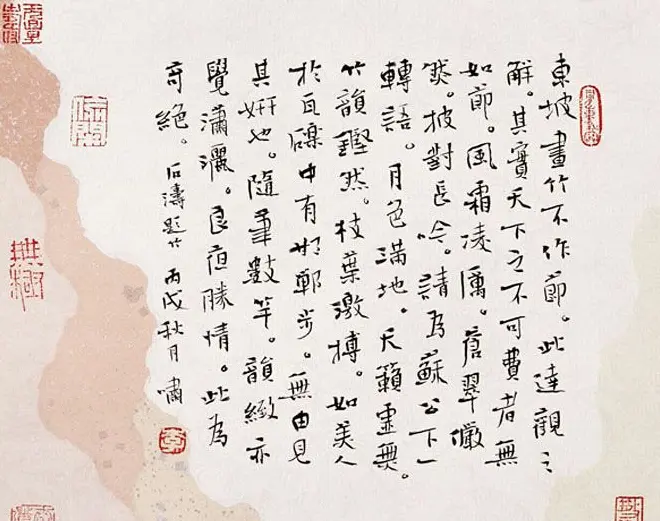 東坡畫竹不作節。此達觀之
解。其實天下之不可費者無
如節。風霜凌厲。蒼翠儼
然。披對長吟。請為蘇公下一
轉語。月色滿地。天籟靈無。
竹韻鏗然。枝葉激搏。如美人
於瓦礫中有邯鄲步。無由見
其妍也。隨筆數竿。韻緻亦
覺瀟灑。良夜勝情。此為
奇絕。石濤題竹 丙戌秋月 嘯